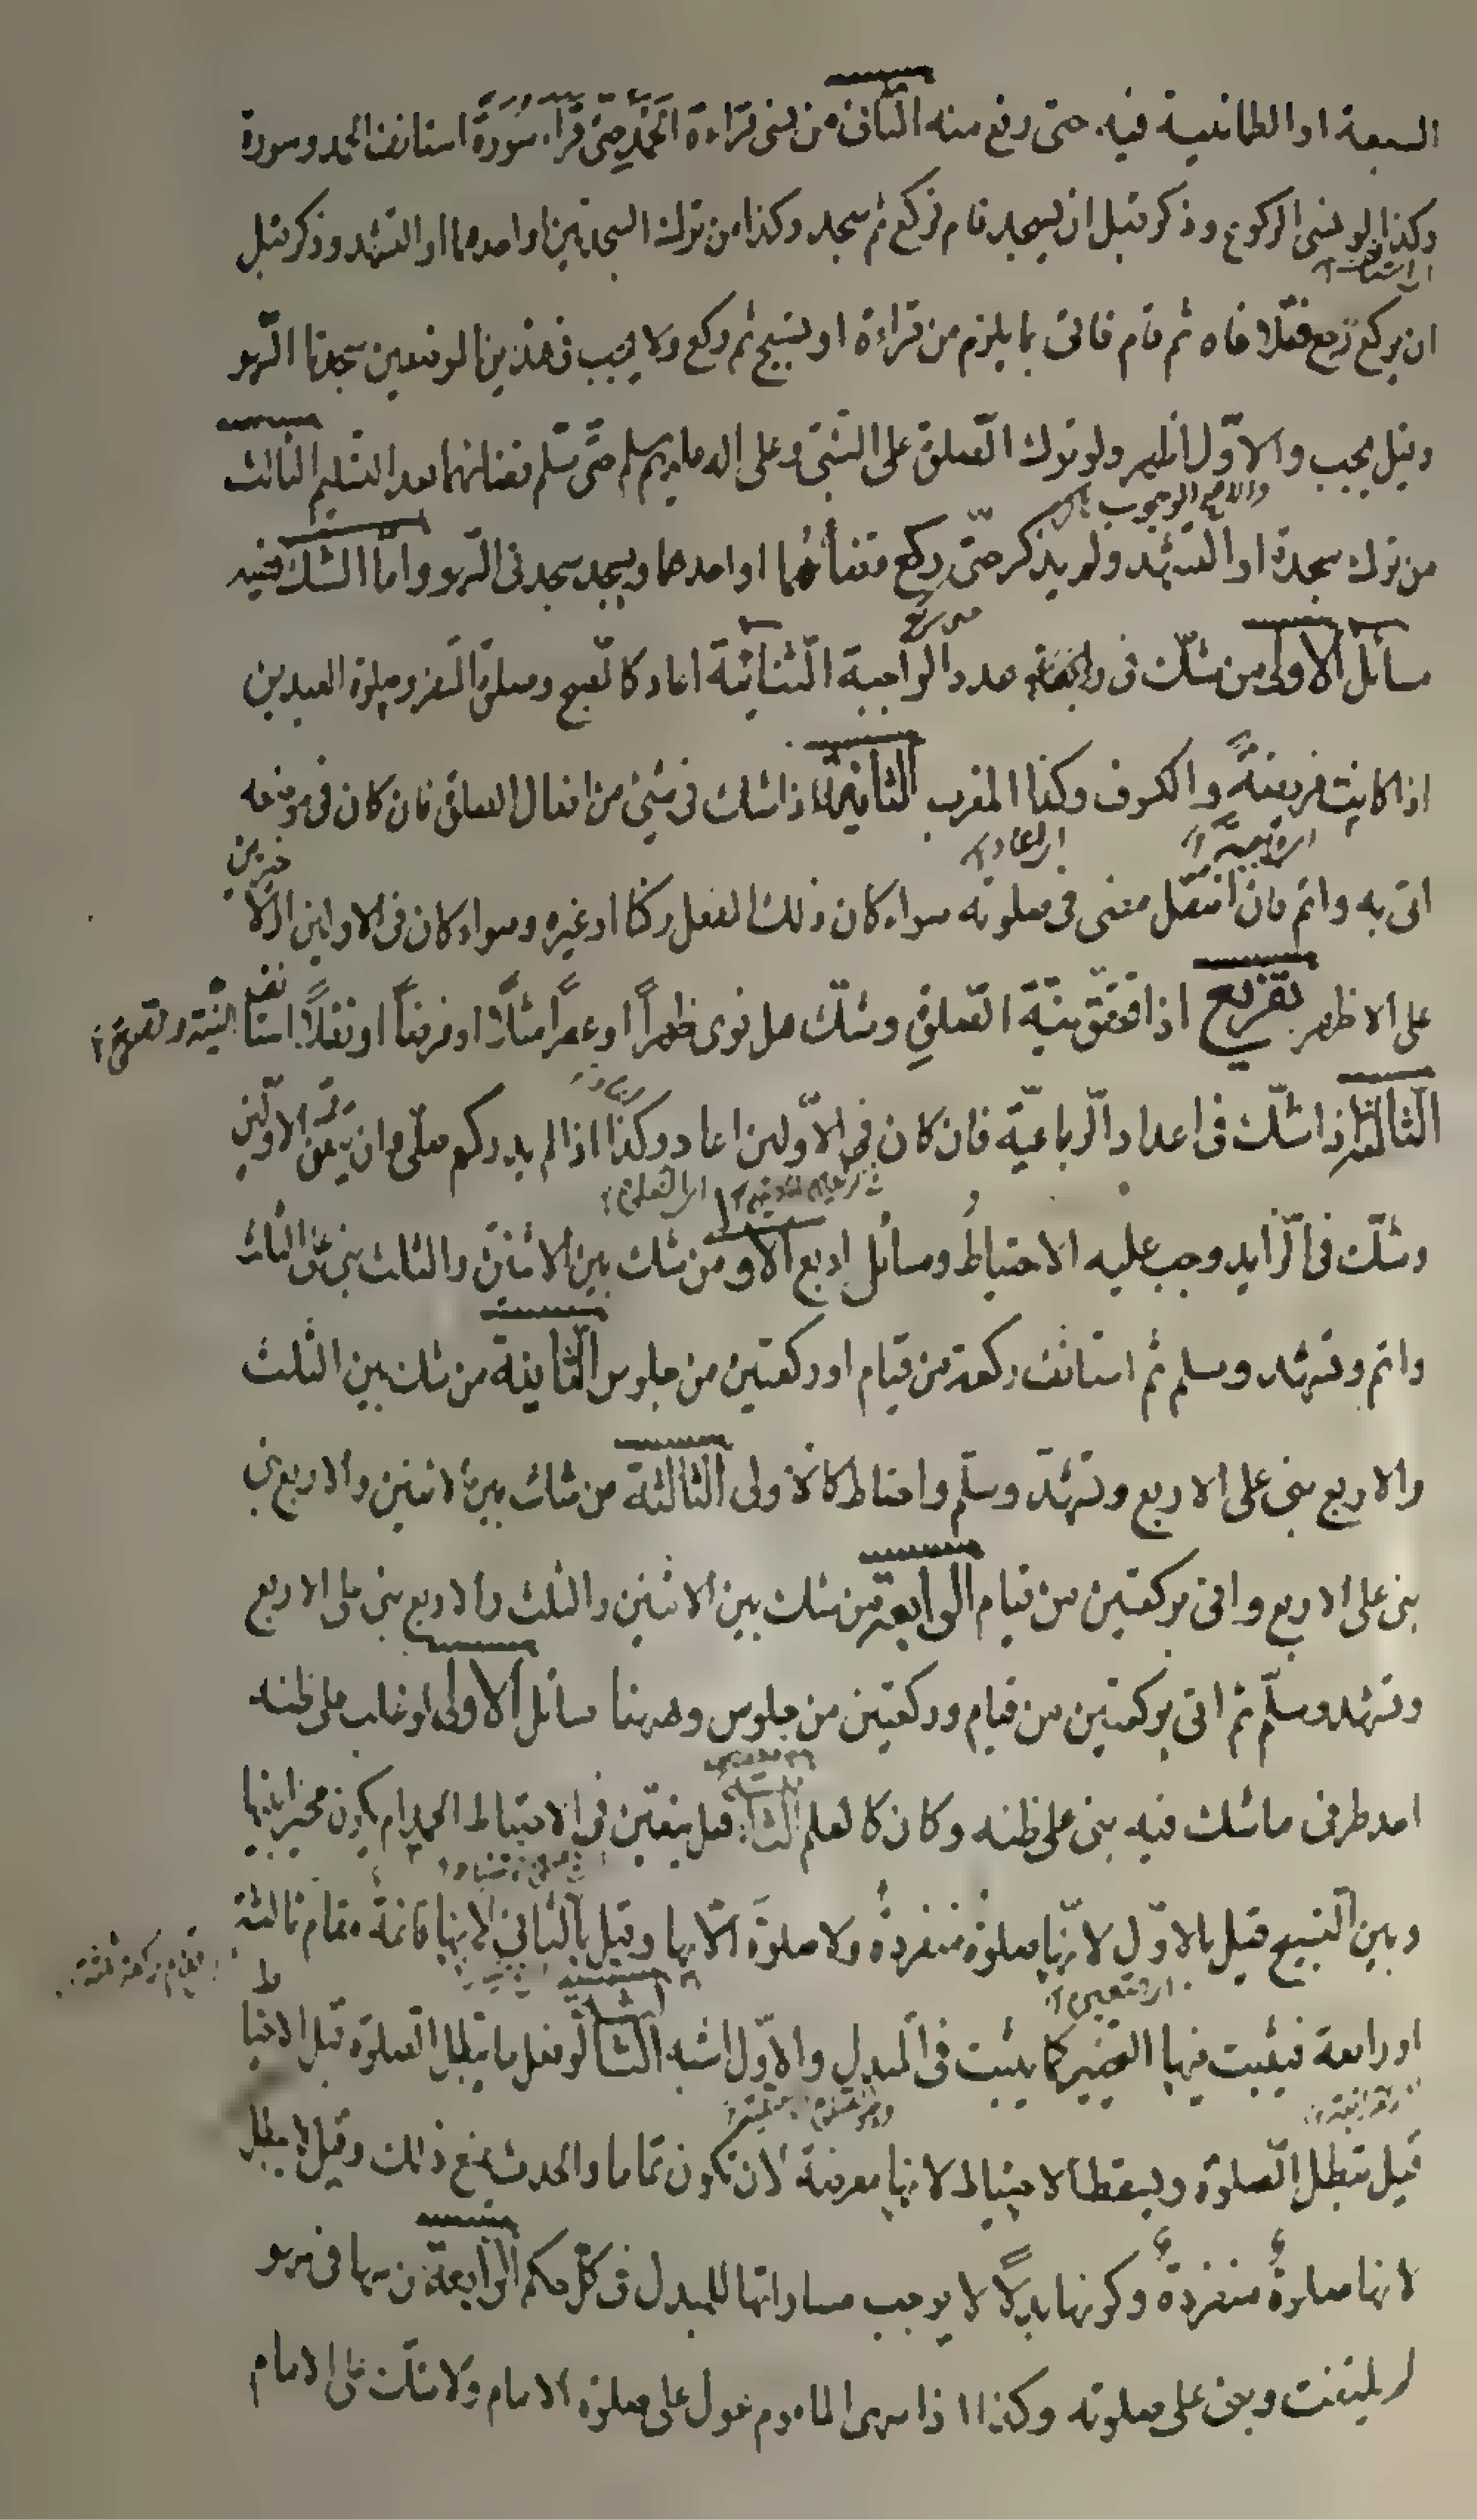 السبعة او الطمانينة فيه حتى رفع منه الثانى من نسى قراءة الحمد حتى قرأ سورة استانف الحمد وسورة
وكذا لو نسى الركوع وذكر قبل ان يسجد قام فركع ثم سجد وكذا من ترك السجدتين او احدهما او التشهد وذكر قبل
ان يركع رجع فتلافاه ثم قام فاتى بما يلزم من قراءة او تسبيح ثم ركع ولا يجب فى هذين الموضعين سجدتا السهو
وقيل يجب والاول اظهر ولو ترك الصلوة على النبى وعلى اله عليهم السلم حتى سلم قضاهما بعد التسليم الثالث
من ترك سجدة او التشهد ولم يذكر حتى ركع قضاهما او احدهما ويسجد سجدتى السهو واما الشك ففيه
مسائل الاولى من شك فى عدد الواجبة الثنائية اعاد كالصبح وصلوة السفر وصلوة العيدين
اذا كانت فريضة والكسوف وكذا المغرب الثانية اذا شك فى شئ من افعال الصلوة فان كان فى موضعه
اتى به واتم فان انتقل مضى فى صلوته سواء كان ذلك الفعل ركنا او غيره وسواء كان فى الاوليين او الا
خيرتين
على الاظهر تفريع اذا تحقق نية الصلوة وشك هل نوى ظهرا او عصرا مثلا او فرضا او نفلا استا
نف
الثالثة اذا شك فى اعداد الرباعية فان كان فى الاولين اعاد وكذا اذا لم يدر كم صلى وان تيقن الاولين
وشك فى الزايد وجب عليه الاحتياط ومسائل اربع الاولى من شك بين الاثنين والثلث بنى على الثلث
واتم وتشهد وسلم ثم استانف ركعة من قيام او ركعتين من جلوس الثانية من شك بين الثلث
والاربع بنى على الاربع وتشهد وسلم واحتاط كالاولى الثالثة من شك بين الاثنين والاربع بنى
بنى على الاربع واتى بركعتين من قيام الرابعة من شك بين الاثنين والثلث والاربع بنى على الاربع
وتشهد وسلم ثم اتى بركعتين من قيام وركعتين من جلوس وههنا مسائل الاولى لو غلب على ظنه
احد طرفى ما شك فيه بنى على ظنه وكان كالعلم الثا هل يتعين فى الاحتياط الحمد ام يكون مخيرا بينها
وبين التسبيح قيل بالاول لانها صلوة منفردة ولا صلوة الا بها وقيل بالثانى لانها قائمة مقام ثالثة
او رابعة فيثبت فيها التخيير كما يثبت فى المبدل والاول اشبه الثا لو فعل ما يبطل الصلوة قبل الاحتيا
ط
قيل تبطل الصلوة ويسقط الاحتياط لانها معرضة لان تكون تماما والحدث يمنع ذلك وقيل لا يبطل
لانها صلوة منفردة وكونها بدلا لا يوجب مساواتها للمبدل فى كل حكم الرابعة من سها فى سهو
لم يلتفت وبنى على صلوته وكذا اذا سهى الماموم عول على صلوة الامام ولا شك على الامام